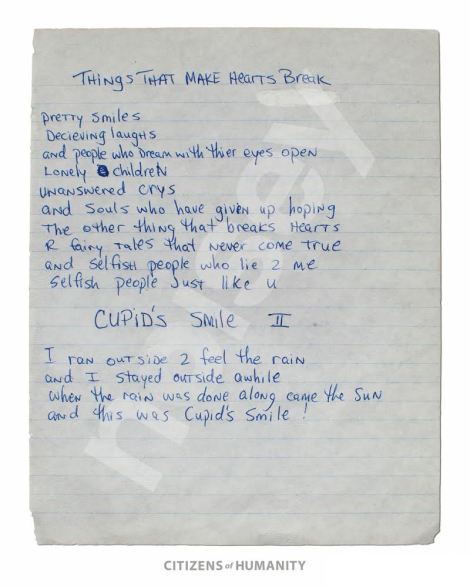 THINGS THAT MAKE HEARTS BREAK
pretty smiles
Decieving laughs
and people who Dream with thier eyes open
Lonely children
UNANSWERED CRYS
and Souls who have given up hoping
The other thing that breaks HEARTS
R fairy Tales that Never come True
and selfish people who lie 2 me
selfish people Just like u
CUPID'S Smile II
I ran outside 2 feel the rain
and I stayed outside awhile
when the rain was done along came the Sun
and this was Cupid's Smile!
CITIZENS of HUMANITY